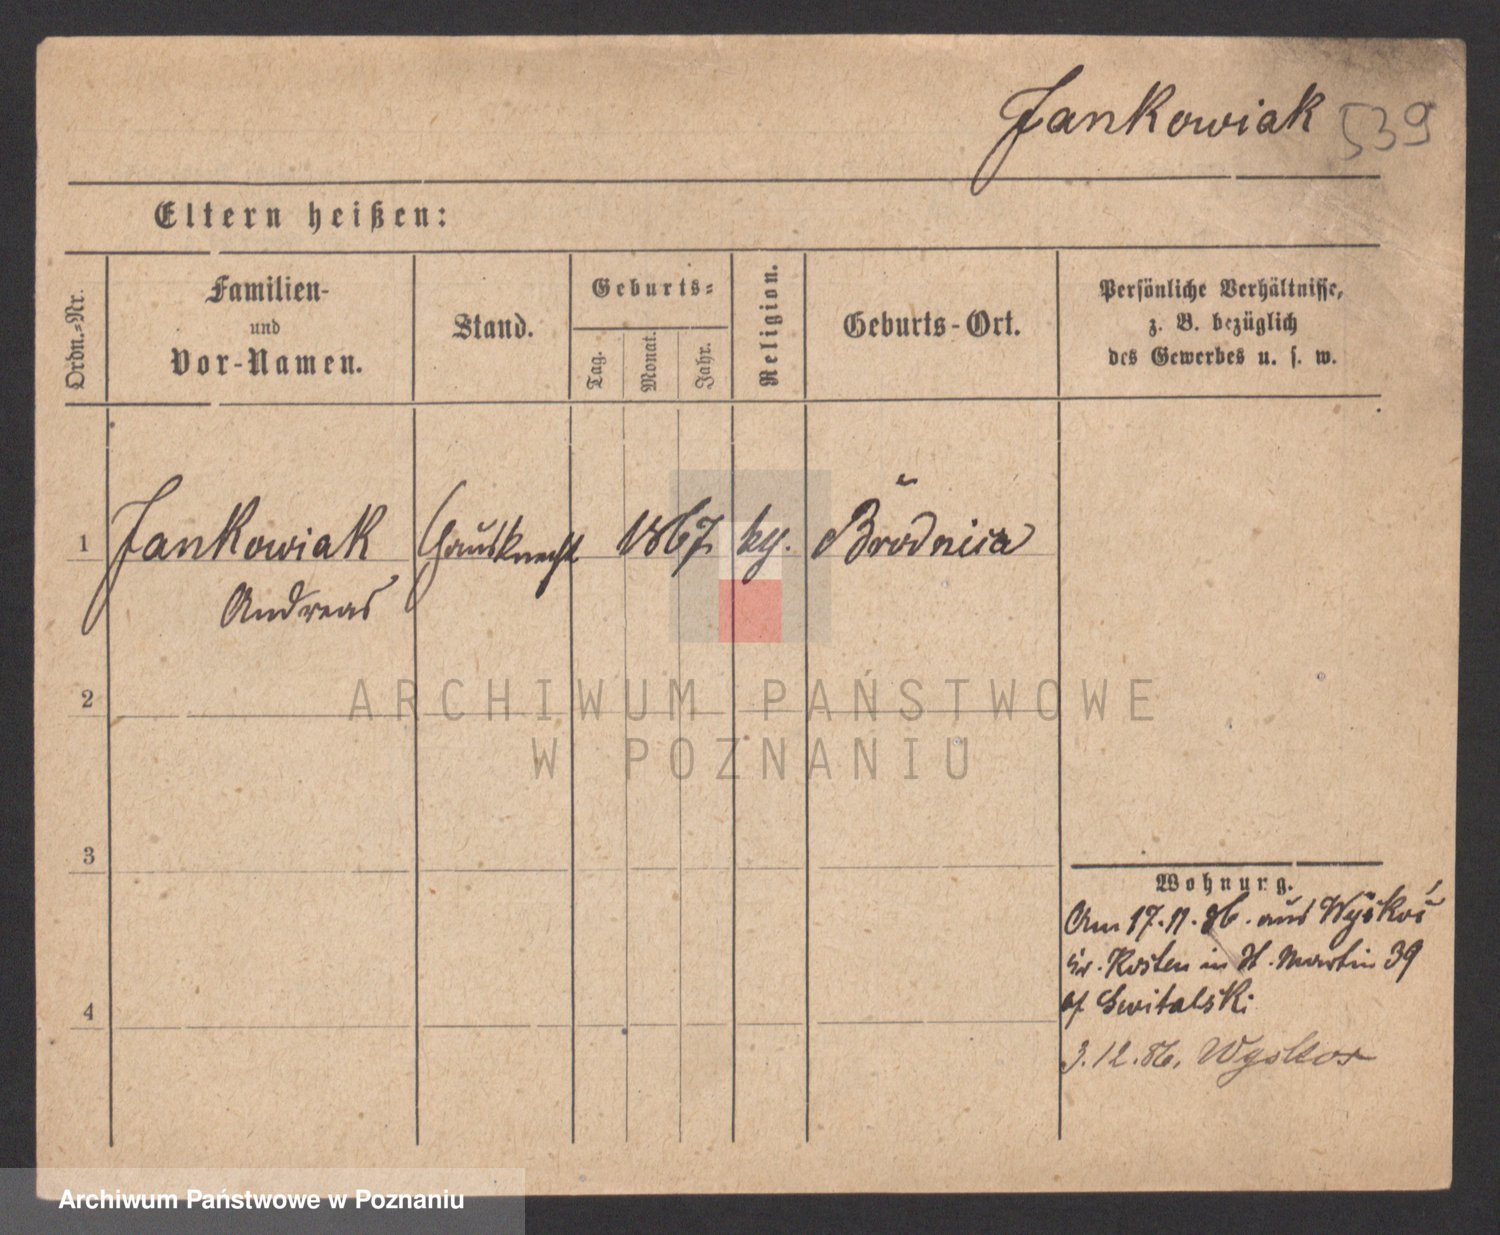 Jankowiak 539
Eltern heißen:
Ordn.-Nr.
Familien-
und
Vor-Namen.
Stand.
Geburts-
Tag.
Monat.
Jahr.
Religion.
Geburts-Ort.
Persönliche Verhältnisse,
z. B. bezüglich
des Gewerbes u. s. w.
1 Jankowiak Hausknecht 1867 kg. Brodnica
Andreas
2
ARCHIWUM PAŃSTWOWE
W POZNANIU
3
Wohnung.
Am 17.11.86. aus Wyskoć
Kr. Kosten in St. Martin 39
Switalski
4
3.12.86. Wyskoc
Archiwum Państwowe w Poznaniu